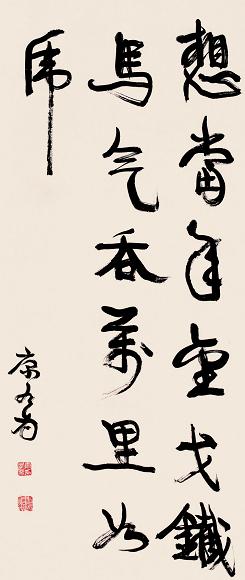 想當年金戈鐵
馬气吞萬里如
虎
康有为